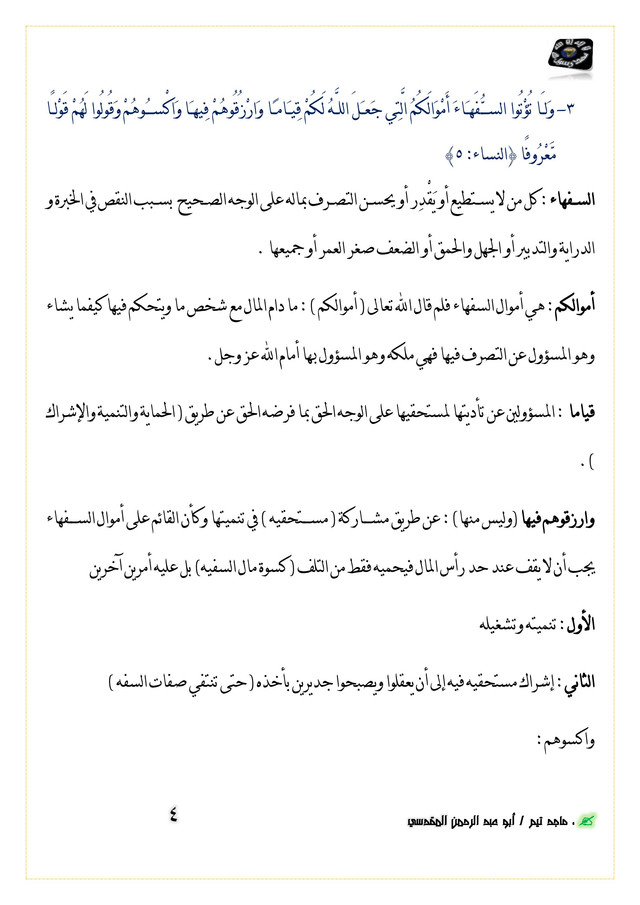 ٣- وَلَا تُؤْتُوا السُّفَهَاءَ أَمْوَالَكُمُ الَّتِي جَعَلَ اللَّهُ لَكُمْ قِيَامًا وَارْزُقُوهُمْ فِيهَا وَاكْسُوهُمْ وَقُولُوا لَهُمْ قَوْلًا
مَّعْرُوفًا ﴿النساء: ٥﴾
السفهاء : كل من لا يستطيع أو يَقْدِر أو يحسن التصرف بماله على الوجه الصحيح بسبب النقص في الخبرة و
الدراية والتدبير أو الجهل والحمق أو الضعف صغر العمر أو جميعها .
أموالكم : هي أموال السفهاء فلم قال الله تعالى ( أموالكم ) : ما دام المال مع شخص ما ويتحكم فيها كيفما يشاء
وهو المسؤول عن التصرف فيها فهي ملكه وهو المسؤول بها أمام الله عز وجل .
قياما : المسؤولين عن تأديتها لمستحقيها على الوجه الحق بما فرضه الحق عن طريق ( الحماية والتنمية والإشراك
) .
وارزقوهم فيها (وليس منها) : عن طريق مشاركة ( مستحقيه ) في تنميتها وكأن القائم على أموال السفهاء
يجب أن لا يقف عند حد رأس المال فيحميه فقط من التلف (كسوة مال السفيه) بل عليه أمرين آخرين
الأول : تنميته وتشغيله
الثاني : إشراك مستحقيه فيه إلى أن يعقلوا ويصبحوا جديرين بأخذه ( حتى تنتفي صفات السفه )
واكسوهم :
. ماجد تيم / أبو عبد الرحمن المقدسي
٤